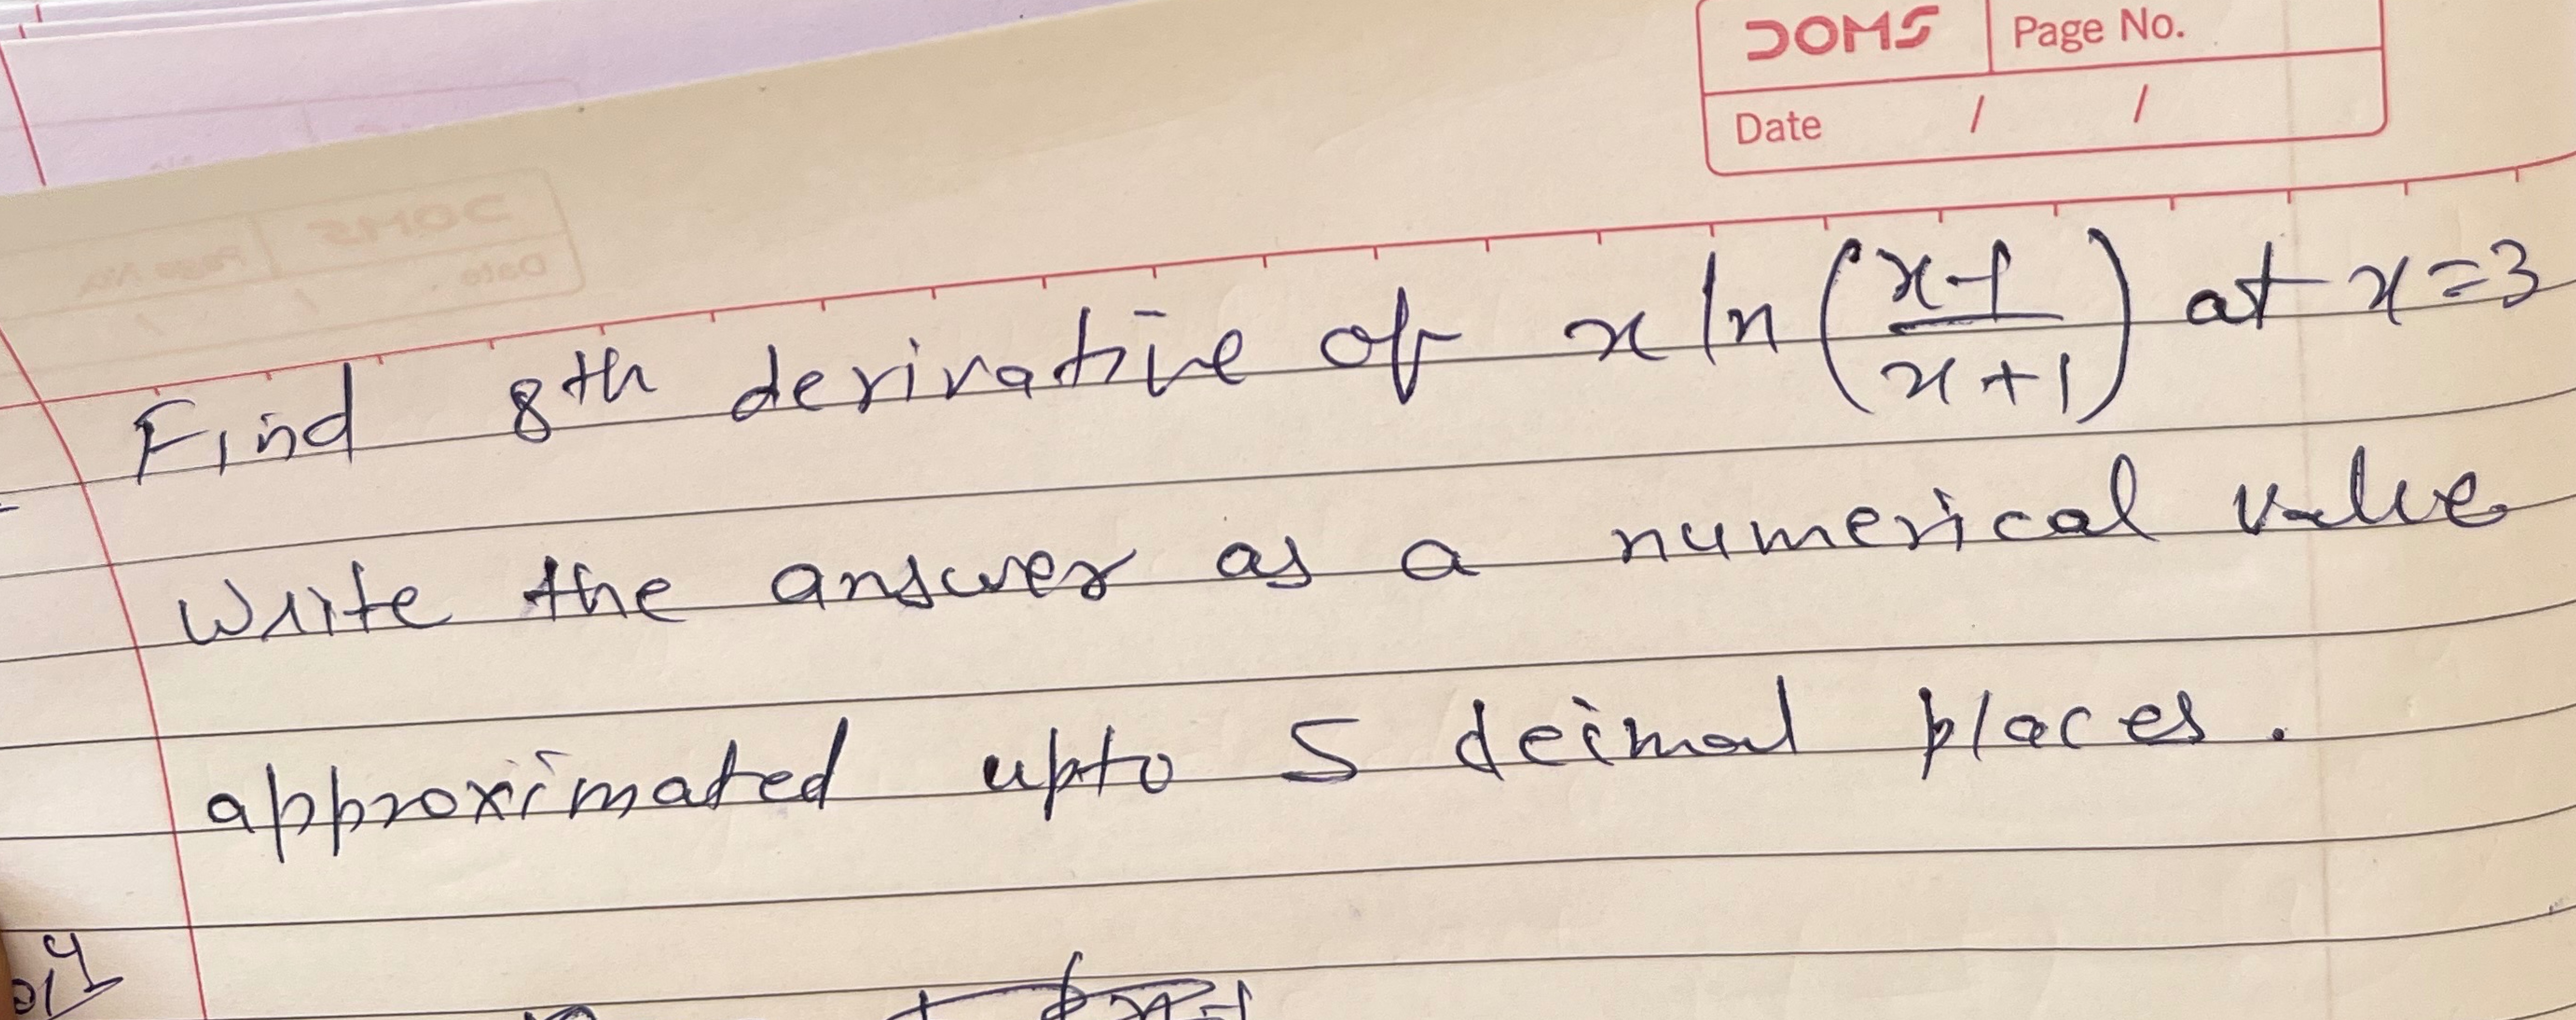 DOMS Page No.
Date / /
Find 8th derivative of x ln (x-1/x+1) at x=3
Write the answer as a numerical value
approximated upto 5 deimal places.